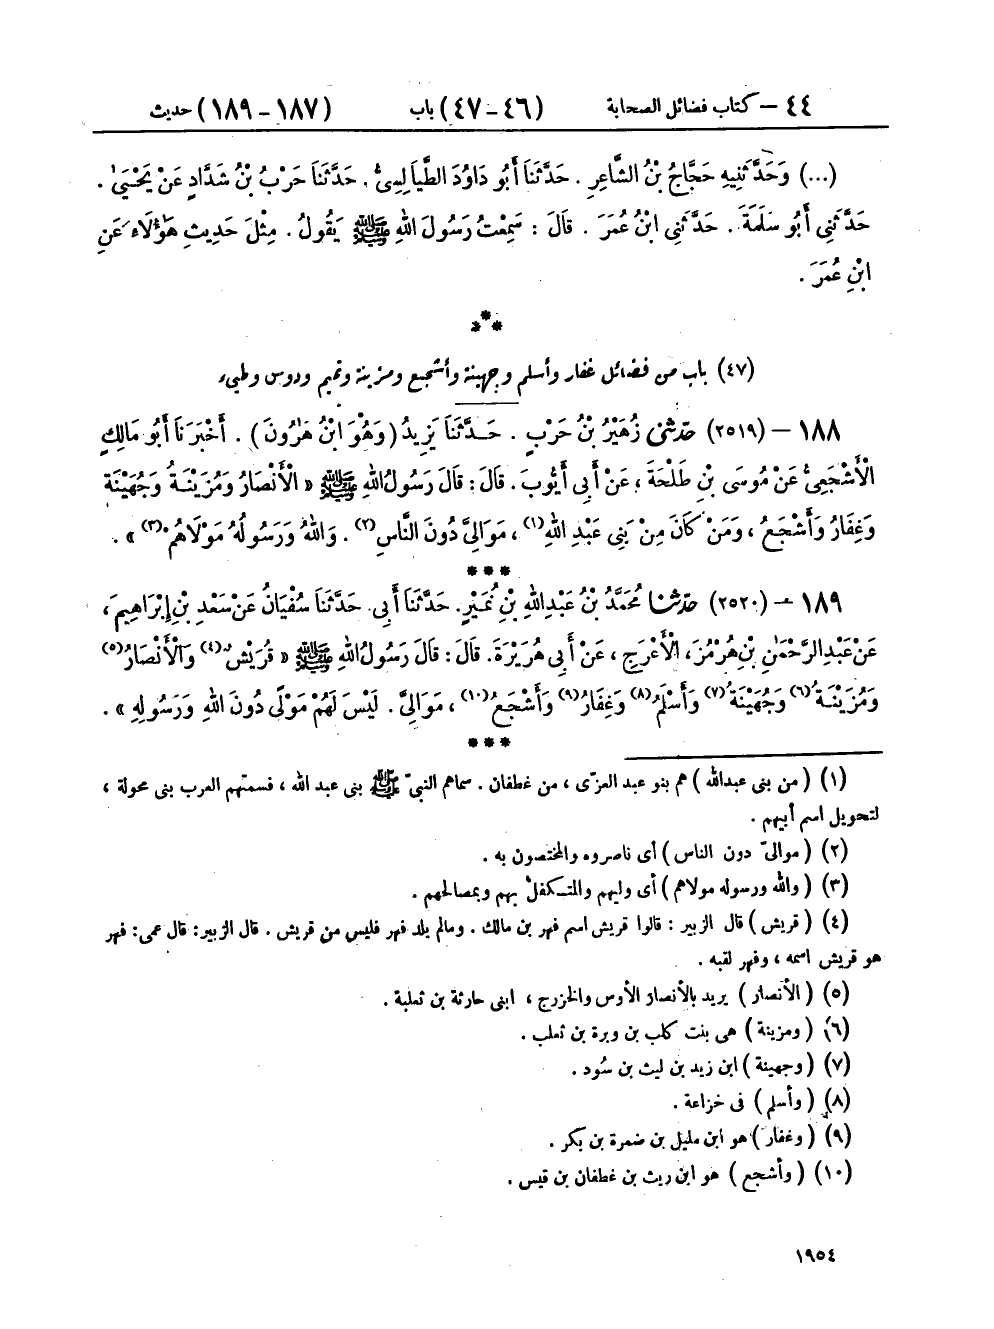 ٤٤ – كتاب فضائل الصحابة (٤٦ – ٤٧) باب (١٨٧ – ١٨٩) حديث
(...) وَحَدَّثَنِيهِ حَجَّاجُ بْنُ الشَّاعِرِ . حَدَّثَنَا أَبُو دَاوُدَ الطَّيَالِسِىُّ . حَدَّثَنَا حَرْبُ بْنُ شَدَّادٍ عَنْ يَحْيَىٰ .
حَدَّثَنِى أَبُو سَلَمَةَ . حَدَّثَنِى ابْنُ عُمَرَ . قَالَ : سَمِعْتُ رَسُولَ اللهِ ﷺ يَقُولُ . مِثْلَ حَدِيثِ هٰؤُلَاءِ عَنِ
ابْنِ عُمَرَ .
***
(٤٧) باب من فضائل غفار وأسلم وجهينة وأشجع ومزينة وتميم ودوس وطيء
١٨٨ – (٢٥١٩) حَدَّثَنِى زُهَيْرُ بْنُ حَرْبٍ . حَدَّثَنَا يَزِيدُ (وَهُوَ ابْنُ هَرُونَ) . أَخْبَرَنَا أَبُو مَالِكٍ
الْأَشْجَعِىُّ عَنْ مُوسَى بْنِ طَلْحَةَ ، عَنْ أَبِى أَيُّوبَ . قَالَ : قَالَ رَسُولُ اللهِ ﷺ « الْأَنْصَارُ وَمُزَيْنَةُ وَجُهَيْنَةُ
وَغِفَارُ وَأَشْجَعُ ، وَمَنْ كَانَ مِنْ بَنِى عَبْدِ اللهِ(١) ، مَوَالِىَّ دُونَ النَّاسِ(٢) . وَاللهُ وَرَسُولُهُ مَوْلَاهُمْ(٣) » .
***
١٨٩ – (٢٥٢٠) حَدَّثَنَا مُحَمَّدُ بْنُ عَبْدِ اللهِ بْنِ نُمَيْرٍ . حَدَّثَنَا أَبِى . حَدَّثَنَا سُفْيَانُ عَنْ سَعْدِ بْنِ إِبْرَاهِيمَ ،
عَنْ عَبْدِ الرَّحْمَٰنِ بْنِ هُرْمُزَ ، الْأَعْرَجِ ، عَنْ أَبِى هُرَيْرَةَ . قَالَ : قَالَ رَسُولُ اللهِ ﷺ « قُرَيْشٌ(٤) وَالْأَنْصَارُ(٥)
وَمُزَيْنَةُ(٦) وَجُهَيْنَةُ(٧) وَأَسْلَمُ(٨) وَغِفَارُ(٩) وَأَشْجَعُ(١٠) ، مَوَالِىَّ . لَيْسَ لَهُمْ مَوْلًى دُونَ اللهِ وَرَسُولِهِ » .
***
(١) ( من بنى عبد الله ) هم بنو عبد العزى ، من غطفان . سماهم النبىّ ﷺ بنى عبد الله ، فسمتهم العرب بنى محولة ،
لتحويل اسم أبيهم .
(٢) ( موالىّ دون الناس ) أى ناصروه والمختصون به .
(٣) ( والله ورسوله مولاهم ) أى وليهم والمتكفل بهم وبمصالحهم .
(٤) ( قريش ) قال الزبير : قالوا قريش اسم فهر بن مالك . ومالم يلد فهر فليس من قريش . قال الزبير : قال عمى : فهر
هو قريش اسمه ، وفهر لقبه .
(٥) ( الأنصار ) يريد بالأنصار الأوس والخزرج ، ابنى حارثة بن ثعلبة .
(٦) ( ومزينة ) هى بنت كلب بن وبرة بن ثعلب .
(٧) ( وجهينة ) ابن زيد بن ليث بن سُود .
(٨) ( وأسلم ) فى خزاعة .
(٩) ( وغفار ) هو ابن مليل بن ضمرة بن بكر .
(١٠) ( وأشجع ) هو ابن ريث بن غطفان بن قيس .
١٩٥٤